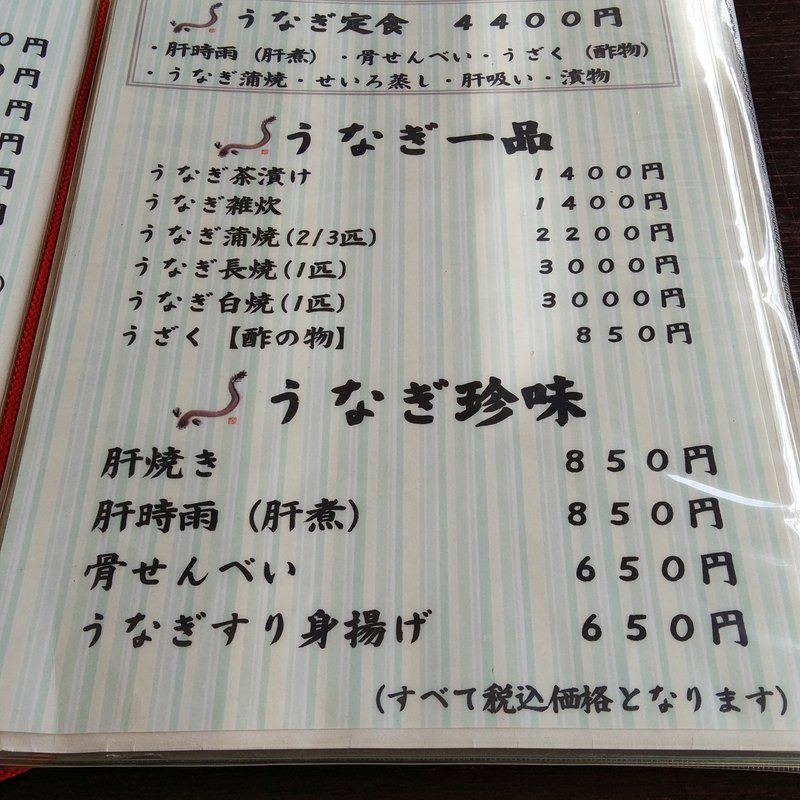 うなぎ定食　4400円
・肝時雨（肝煮）・骨せんべい・うざく（酢物）
・うなぎ蒲焼・せいろ蒸し・肝吸い・漬物
うなぎ一品
うなぎ茶漬け　1400円
うなぎ雑炊　1400円
うなぎ蒲焼(2/3匹)　2200円
うなぎ長焼(1匹)　3000円
うなぎ白焼(1匹)　3000円
うざく【酢の物】　850円
うなぎ珍味
肝焼き　850円
肝時雨（肝煮）　850円
骨せんべい　650円
うなぎすり身揚げ　650円
(すべて税込価格となります)